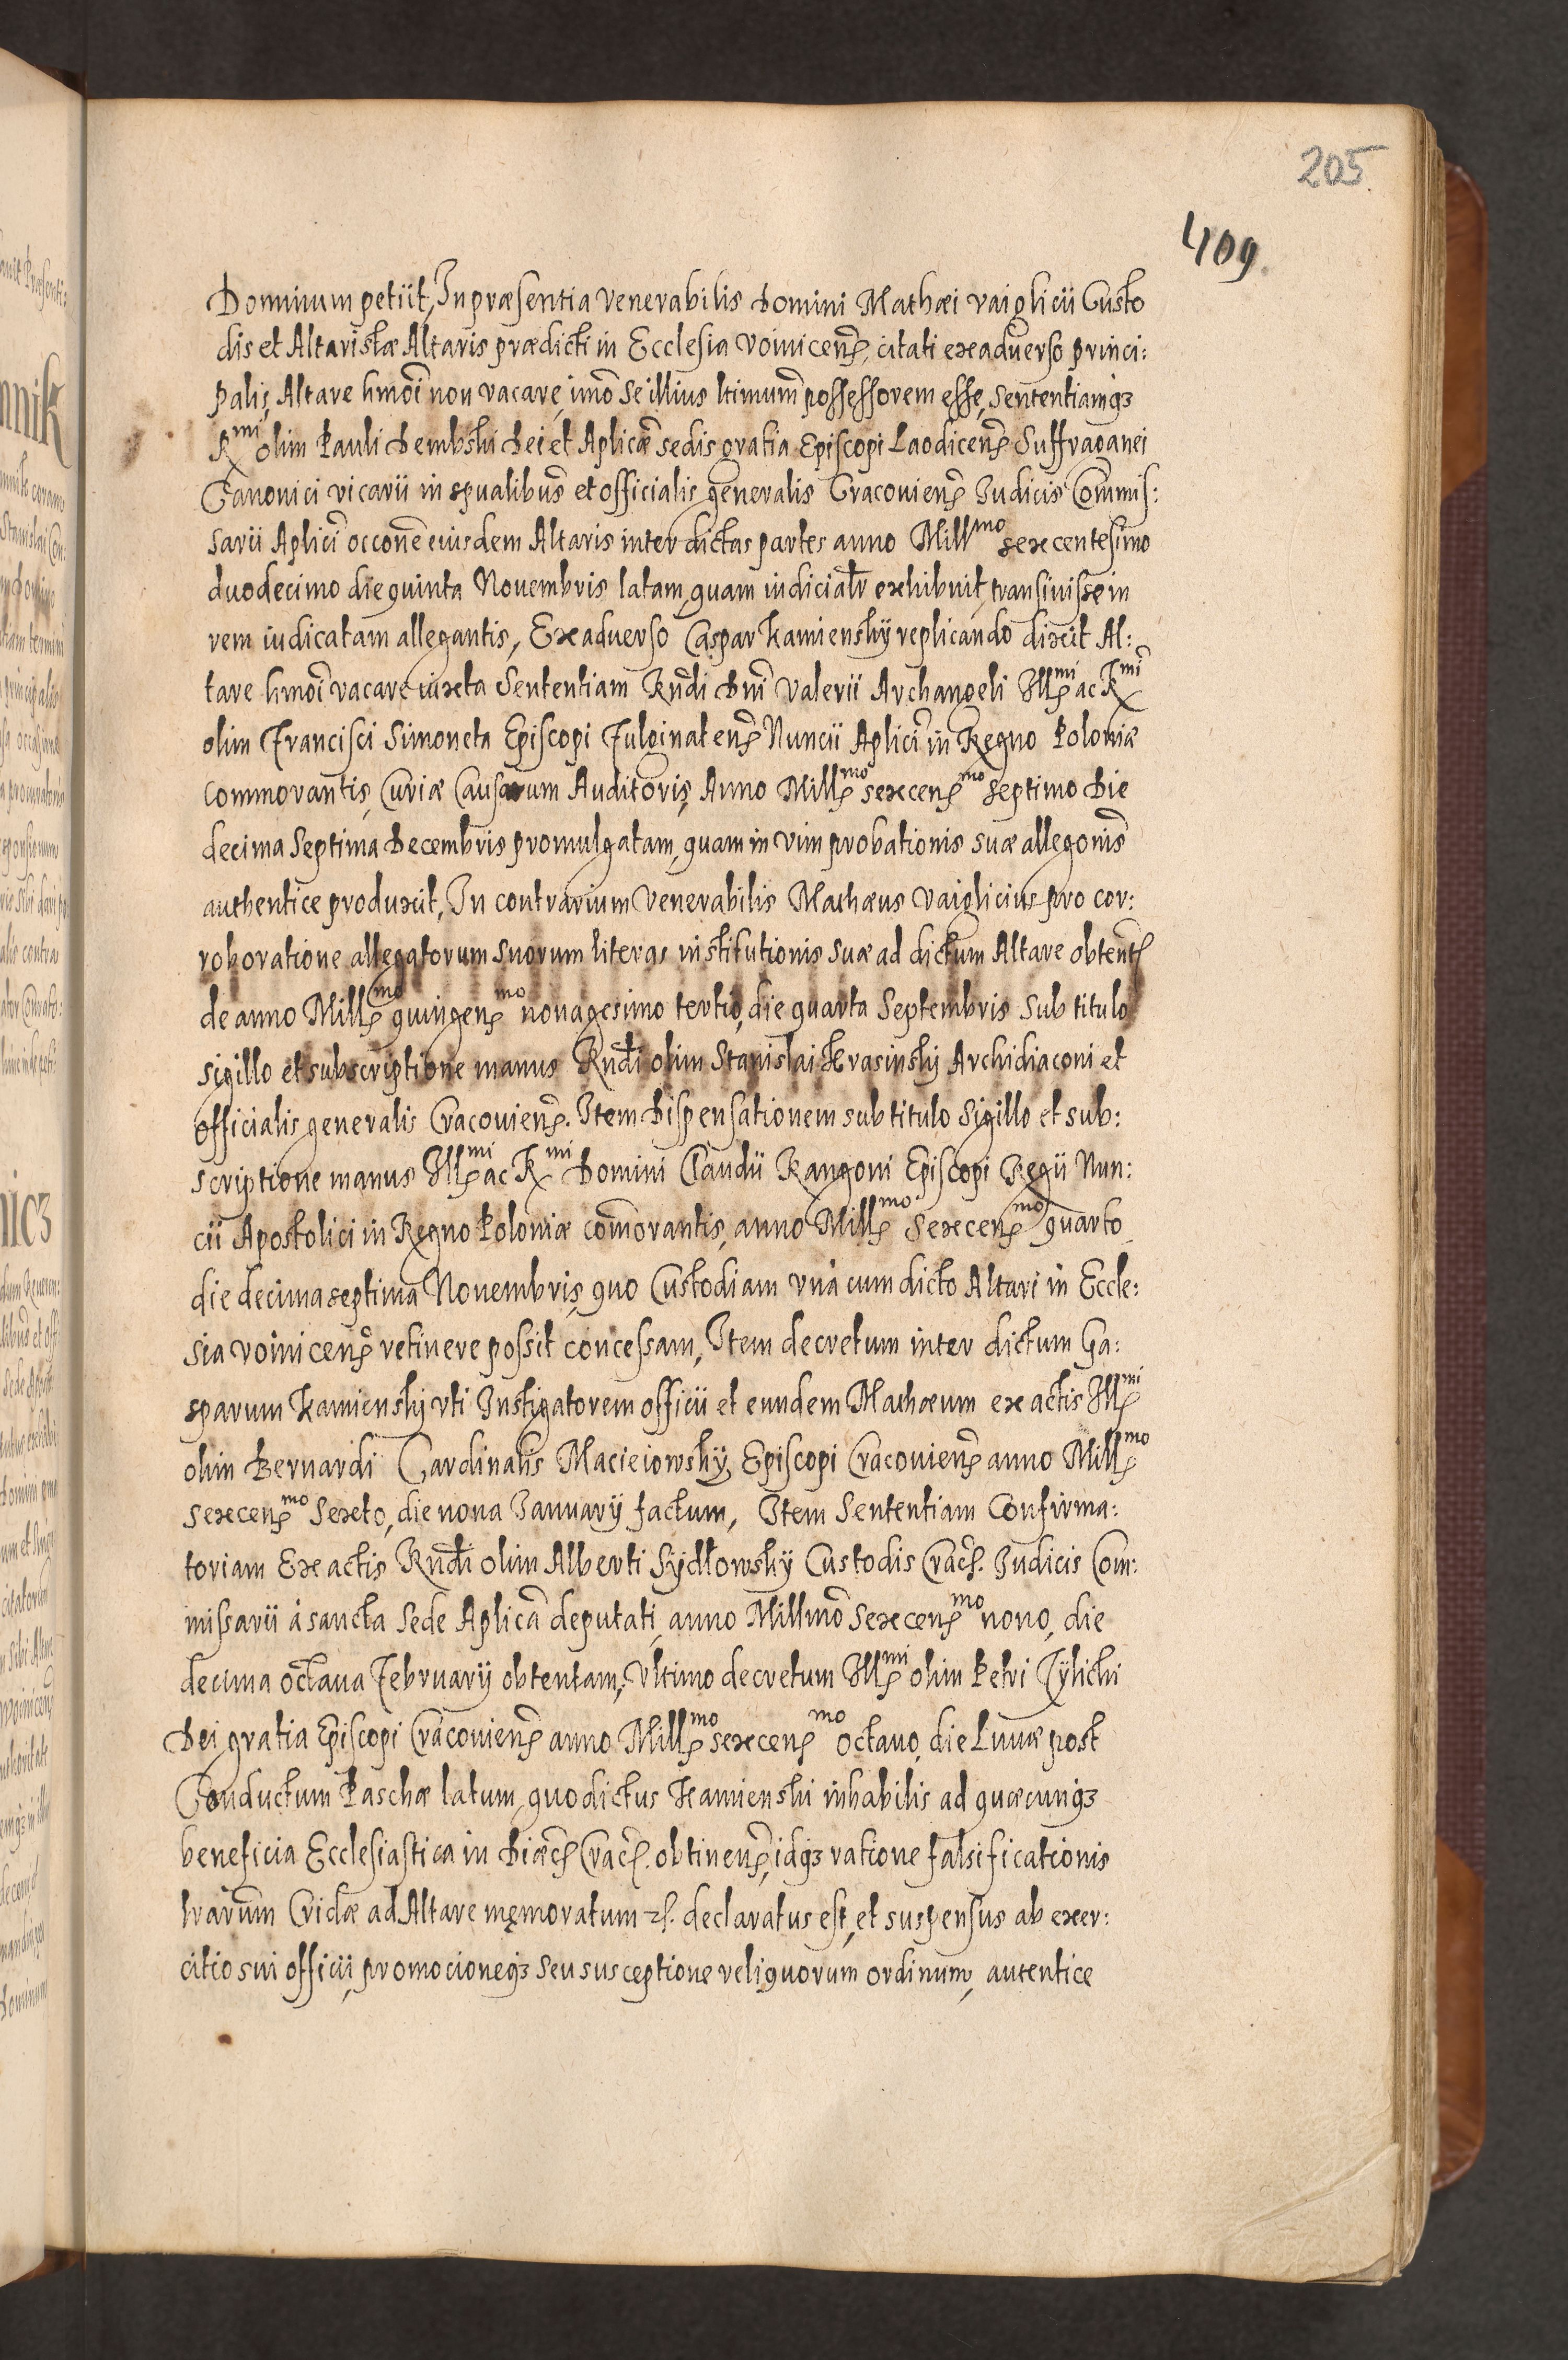 205.
409.
Dominum petiit, In præsentia Venerabilis Domini Mathæi Vaiglicii Custo
dis et Altaristæ Altaris prædicti in Ecclesia Voinicen̄ citati ex aduerso princi:
palis, Altare hmōi non vacare, imò Se illius ltimum̄ possessorem esse, Sententiamqȝ
R^mi olim Pauli Dembski Dei et Aplicǣ sedis gratia Episcopi Laodicen̄ Suffraganei
Canonici vicarii in spualibus̄ et officialis generalis Cracouien̄ Iudicis Commis:
sarii Aplici̅ occōne eiusdem Altaris inter dictas partes anno Mill^mo sexcentesimo
duodecimo die quinta Nouembris latam, quam iudicialr̄ exhibuit, transiuisse in
rem iudicatam allegantis, Ex aduerso Caspar Kamienskÿ replicando dixit Al:
tare hmōi vacare iuxta Sententiam Rndi̅ Dni̅ Valerii Archangeli Ill^mi ac R^mi
olim Francisci Simoneta Episcopi Fulginaten̄ Nuncii Aplici̅ in Regno Poloniæ
Commorantis, Curiæ Causarum Auditoris, Anno Mill^mo sexcen^mo Septimo Die
decima Septima Decembris promulgatam, quam in vim probationis suæ allegōnis
authentice produxit, In contrarium Venerabilis Mathæus Vaiglicius pro cor:
roboratione allegatorum suorum literas institutionis suæ ad dictum Altare obtent̄
de anno Mill^mo quingen^mo nonagesimo tertio, die quarta Septembris sub titulo
sigillo et subscriptione manus Rndi̅ olim Stanislai Krasinskÿ Archidiaconi et
officialis generalis Cracouien̄. Item Dispensationem sub titulo Sigillo et sub:
scriptione manus Ill^mi ac R^mi Domini Claudii Rangoni Episcopi Regii Nun:
cii Apostolici in Regno Poloniæ com̄orantis, anno Mill^mo Sexcen^mo quarto
die decima septima Nouembris, quo Custodiam vnà cum dicto Altari in Eccle:
sia Voinicen̄ retinere possit concessam, Item decretum inter dictum Ga:
sparum Kamienskÿ vti Instigatorem officii et eundem Mathæum ex actis Ill^mi
olim Bernardi Cardinalis Macieiowskÿ Episcopi Cracouien̄ anno Mill^mo
sexcen^mo Sexto, die nona Ianuarÿ factum, Item Sententiam Confirma:
toriam Ex actis Rndi̅ olim Alberti Sÿdłowskÿ Custodis Crac̄. Iudicis Com:
missarii à sancta Sede Aplica̅ deputati, anno Millmō Sexcen^mo nono, die
decima octaua Februarÿ obtentam, Vltimo decretum Ill^mi olim Petri Tÿlicki
Dei gratia Episcopi Cracouien̄ anno Mill^mo sexcen^mo octauo, die Lunæ post
Conductum Paschæ latum, quo dictus Kamienski inhabilis ad quæcunqȝ
beneficia Ecclesiastica in Diæc̄ Crac̄. obtinen̄, idqȝ ratione falsificationis
lrarum̄ Cridæ ad Altare męmoratum etc. declaratus est, et suspensus ab exer:
citio sui officii, promocioneqȝ seu susceptione reliquorum ordinum, autentice